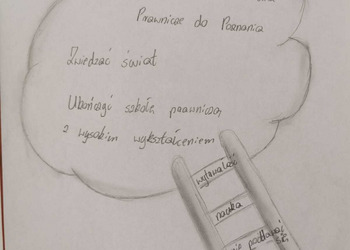 Prawnicze do Poznania
Zwiedzać świat
Ukończyć szkołę prawniczą
z wysokim wykształceniem
wytrwałość
nauka
nie poddawać
się